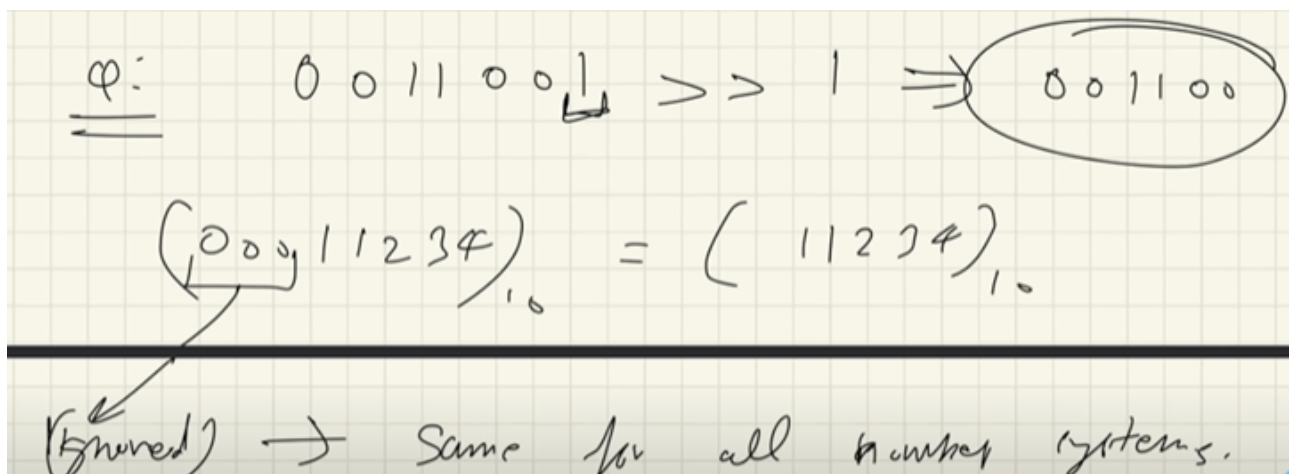 Q: 0011001 >> 1 ⇒ 001100
(00011234)₁₀ = (11234)₁₀
(Ignored) → Same for all number systems.